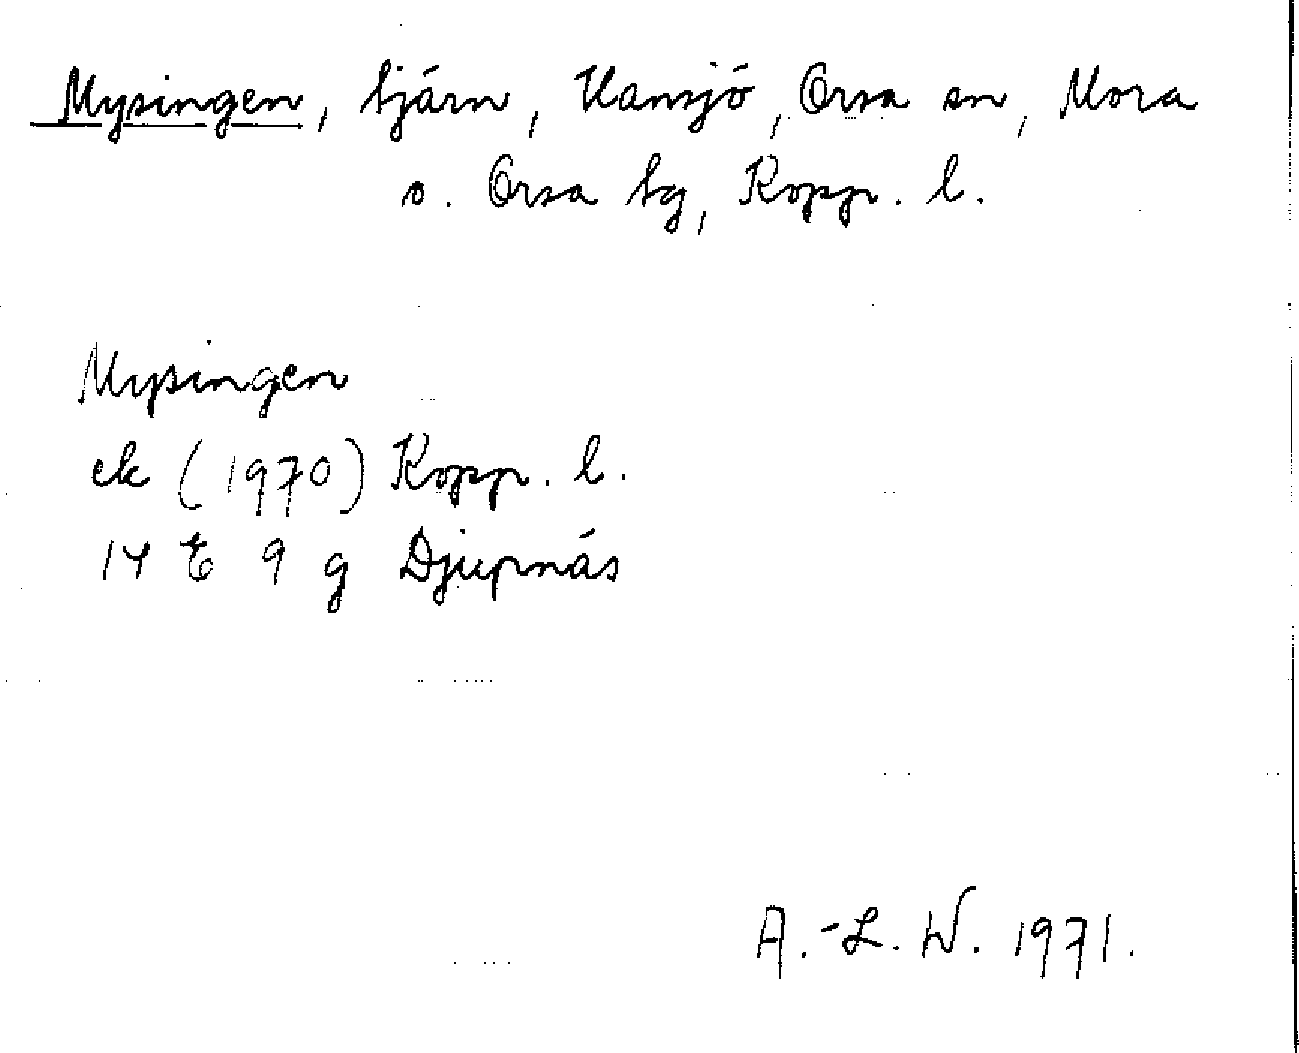 Mysingen, tjärn, Hansjö, Orsa sn, Mora
o. Orsa tg, Kopp. l.
Mysingen
ek (1970) Kopp. l.
14 E 9 g Djupnäs
A.-L. W. 1971.